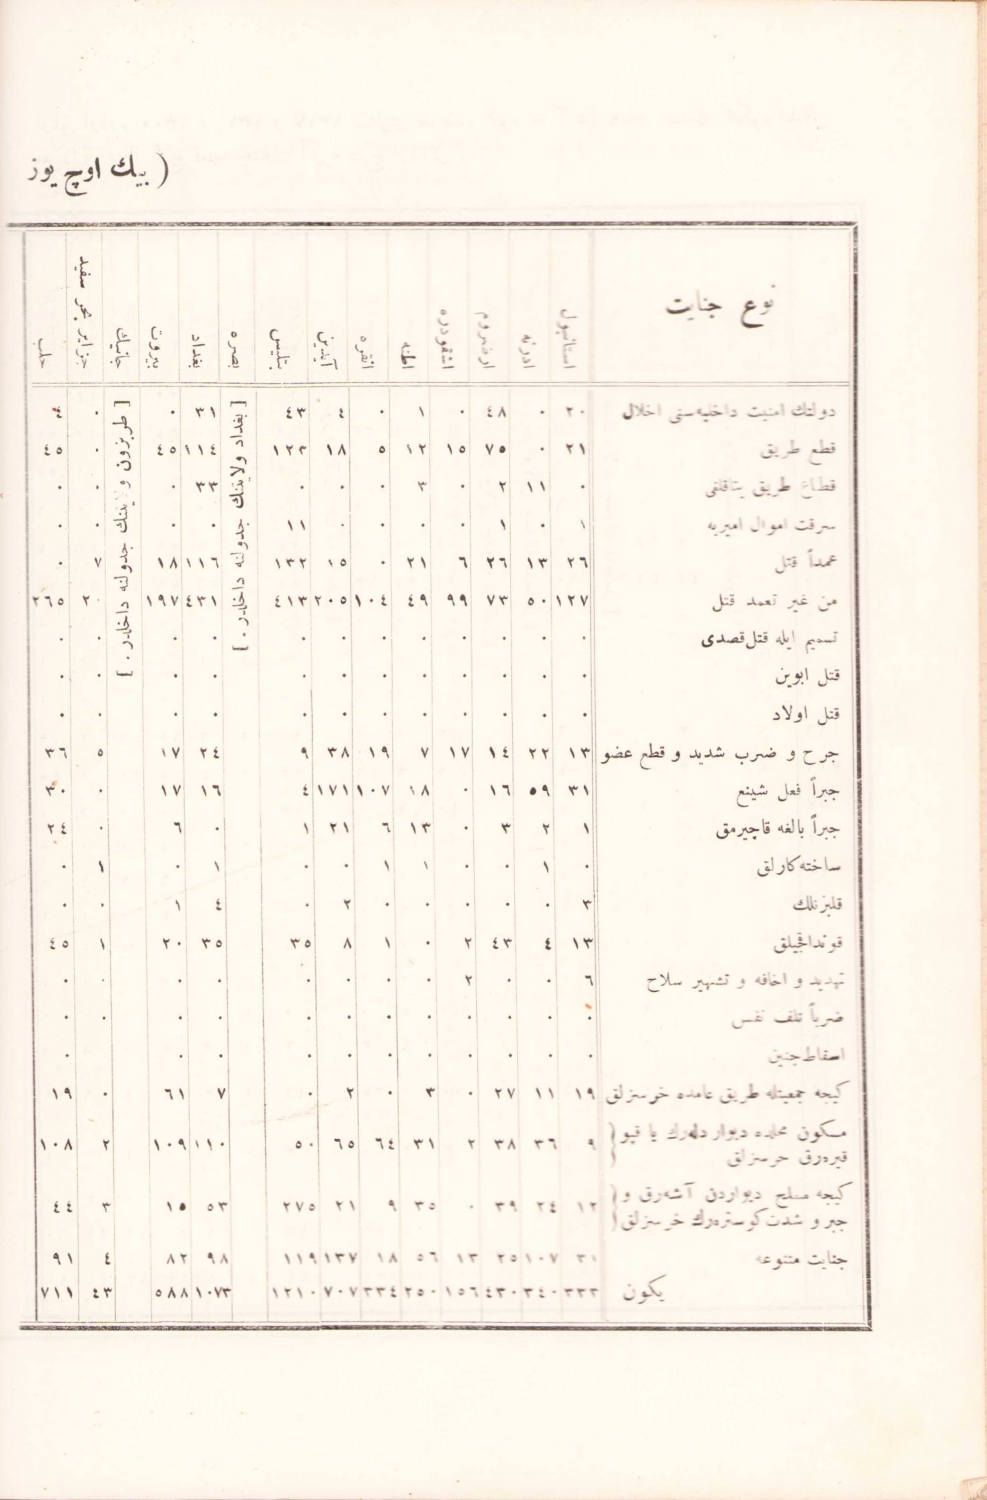 ( بيك اوچ يوز
نوع جنايت | استانبول | ادرنه | ارضروم | اشقودره | اطنه | انقره | آيدين | بتليس | بصره | بغداد | بيروت | جانيك | جزاير بحر سفيد | حلب
دولتك امنيت داخليه‌سنى اخلال | ٢٠ | ٠ | ٤٨ | ٠ | ١ | ٠ | ٤ | ٤٣ | [ بغداد ولايتنك جدولنه داخلدر . ] | ٣١ | ٠ | [ طربزون ولايتنك جدولنه داخلدر . ] | ٠ | ٤
قطع طريق | ٢١ | ٠ | ٧٥ | ١٥ | ١٢ | ٥ | ١٨ | ١٢٣ | ١١٤ | ٤٥ | ٠ | ٤٥
قطاع طريق يتاقلغى | ٠ | ١١ | ٢ | ٠ | ٣ | ٠ | ٠ | ٠ | ٣٣ | ٠ | ٠ | ٠
سرقت اموال اميريه | ١ | ٠ | ١ | ٠ | ٠ | ٠ | ٠ | ١١ | ٠ | ٠ | ٠ | ٠
عمداً قتل | ٢٦ | ١٣ | ٢٦ | ٦ | ٢١ | ٠ | ١٥ | ١٣٢ | ١١٦ | ١٨ | ٧ | ٠
من غير تعمد قتل | ١٢٧ | ٥٠ | ٧٣ | ٩٩ | ٤٩ | ١٠٤ | ٢٠٥ | ٤١٣ | ٤٣١ | ١٩٧ | ٢٠ | ٢٦٥
تسميم ايله قتل قصدى | ٠ | ٠ | ٠ | ٠ | ٠ | ٠ | ٠ | ٠ | ٠ | ٠ | ٠ | ٠
قتل ابوين | ٠ | ٠ | ٠ | ٠ | ٠ | ٠ | ٠ | ٠ | ٠ | ٠ | ٠ | ٠
قتل اولاد | ٠ | ٠ | ٠ | ٠ | ٠ | ٠ | ٠ | ٠ | ٠ | ٠ | ٠ | ٠
جرح و ضرب شديد و قطع عضو | ١٣ | ٢٢ | ١٤ | ١٧ | ٧ | ١٩ | ٣٨ | ٩ | ٢٤ | ١٧ | ٥ | ٣٦
جبراً فعل شنيع | ٣١ | ٥٩ | ١٦ | ٠ | ١٨ | ١٠٧ | ١٧١ | ٤ | ١٦ | ١٧ | ٠ | ٣٠
جبراً بالغه قاچيرمق | ١ | ٢ | ٣ | ٠ | ١٣ | ٦ | ٢١ | ١ | ٠ | ٦ | ٠ | ٢٤
ساخته‌كارلق | ٠ | ١ | ٠ | ٠ | ١ | ١ | ٠ | ٠ | ١ | ٠ | ١ | ٠
قلبزنلك | ٣ | ٠ | ٠ | ٠ | ٠ | ٠ | ٢ | ٠ | ٤ | ١ | ٠ | ٠
قونداقجيلق | ١٣ | ٤ | ٤٣ | ٢ | ٠ | ١ | ٨ | ٣٥ | ٣٥ | ٢٠ | ١ | ٤٥
تهديد و اخافه و تشهير سلاح | ٦ | ٠ | ٠ | ٢ | ٠ | ٠ | ٠ | ٠ | ٠ | ٠ | ٠ | ٠
ضرباً تلف نفس | ٠ | ٠ | ٠ | ٠ | ٠ | ٠ | ٠ | ٠ | ٠ | ٠ | ٠ | ٠
اسقاط جنين | ٠ | ٠ | ٠ | ٠ | ٠ | ٠ | ٠ | ٠ | ٠ | ٠ | ٠ | ٠
كيجه جمعيتله طريق عامده خرسزلق | ١٩ | ١١ | ٢٧ | ٠ | ٣ | ٠ | ٢ | ٠ | ٧ | ٦١ | ٠ | ١٩
مسكون محلده ديوار دله‌رك يا قپو | ٩ | ٣٦ | ٣٨ | ٢ | ٣١ | ٦٤ | ٦٥ | ٥٠ | ١١٠ | ١٠٩ | ٢ | ١٠٨
قيره‌رق خرسزلق
كيجه مسلح ديواردن آشه‌رق و | ١٢ | ٢٤ | ٣٩ | ٠ | ٣٥ | ٩ | ٢١ | ٢٧٥ | ٥٣ | ١٥ | ٣ | ٤٤
جبر و شدت كوستره‌رك خرسزلق
جنايت متنوعه | ٣٠ | ١٠٧ | ٢٥ | ١٣ | ٥٦ | ١٨ | ١٣٧ | ١١٩ | ٩٨ | ٨٢ | ٤ | ٩١
يكون | ٣٣٣ | ٣٤٠ | ٤٣٠ | ١٥٦ | ٢٥٠ | ٣٣٤ | ٧٠٧ | ١٢١٠ | ١٠٧٣ | ٥٨٨ | ٤٣ | ٧١١